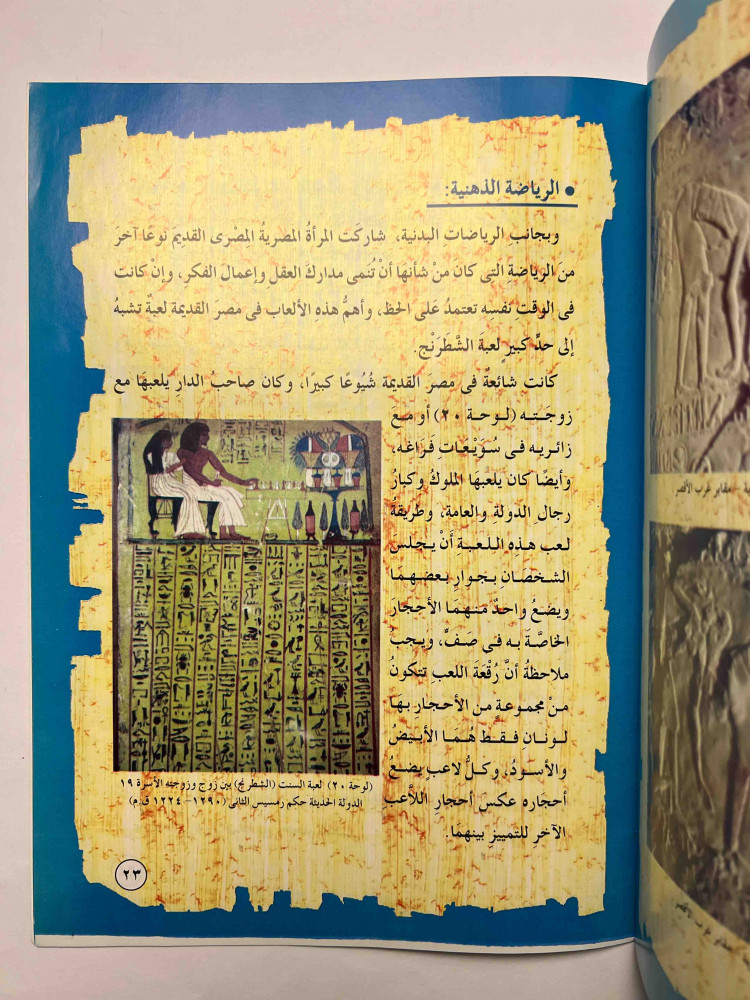 • الرياضة الذهنية:
وبجانب الرياضات البدنية، شاركَت المرأةُ المصريةُ المصْرى القديمَ نوعًا آخرَ
منَ الرياضةِ التِى كان منْ شأنهَا أنْ تُنَمى مداركَ العقل وإعمالَ الفكر، وإنْ كانت
فى الوقت نفسه تعتمدُ عَلى الحظ، وأهمُّ هذهِ الألعاب فى مصرَ القديمة لعبةٌ تشبهُ
إلى حدٍّ كبيرٍ لعبةَ الشَّطرَنْج.
كانت شائعةٌ فى مصرَ القديمة شُيُوعًا كبيرًا، وكان صاحبُ الدارِ يلعبهَا مع
زوجَتـه (لوحة ٢٠) أو مـعَ
زائـريه فى سُـوَيْعَـات فَـرَاغه،
وأيضًا كان يلعبهَا الملوكُ وكبارُ
رجال الدولة والعامة، وطريقةُ
لعب هـذه اللـعبـة أَنْ يـجلس
الشخصَـان بـجوارِ بعضـهمَـا
ويضعُ واحـدٌ منـهمَـا الأحجارَ
الخاصَّـةَ به فى صَـفٍّ، ويـجب
ملاحظةُ أنَّ رُقْعةَ اللعب تتكونُ
مـنْ مجموعـة من الأحـجار بـهَا
لـونـان فـقـط هُـمَـا الأبـيَضُ
والأسـودُ، وكـلُّ لاعب يـضعُ
أحجاره عكسَ أحجار اللاَّعب
الآخرِ للتمييزِ بينهمَا.
(لوحة ٢٠) لعبة السنت (الشطرنج) بين زوج وزوجته الأسرة ١٩
الدولة الحديثة حكم رمسيس الثانى (١٢٩٠ – ١٢٢٤ ق.م)
٢٣
مقابر غرب الأقصر
غرب الأقصر